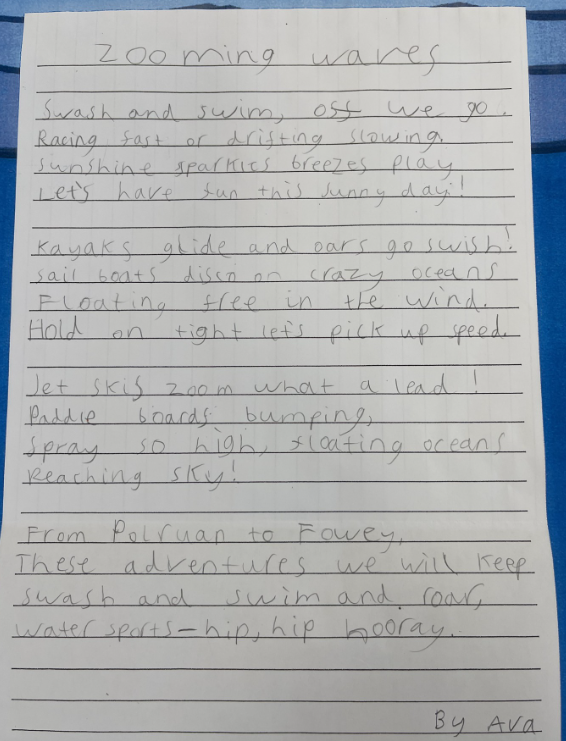 Zooming waves
Swash and swim, off we go.
Racing fast or drifting slowing.
sunshine sparkles breezes play
Let's have fun this sunny day!
Kayaks glide and oars go swish!
sail boats disco on crazy oceans
Floating free in the wind.
Hold on tight let's pick up speed.
Jet skis zoom what a lead!
Paddle boards bumping,
Spray so high, floating oceans
Reaching sky!
From Polruan to Fowey,
These adventures we will keep
swash and swim and roar,
water sports-hip, hip hooray.
By Ava